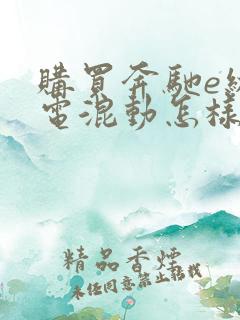 購買奔馳e級
電混動怎樣
精品香煙
未經同意禁止轉載